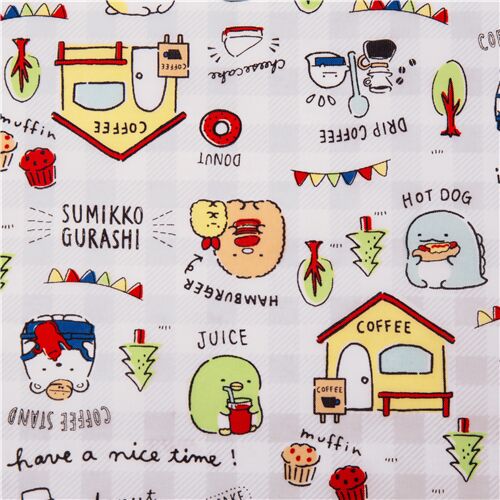 COFFEE
COFFEE
cheesecake
DRIP COFFEE
DONUT
muffin
SUMIKKO
GURASHI
HAMBURGER
HOT DOG
JUICE
COFFEE
COFFEE
COFFEE STAND
have a nice time!
muffin
CAKE